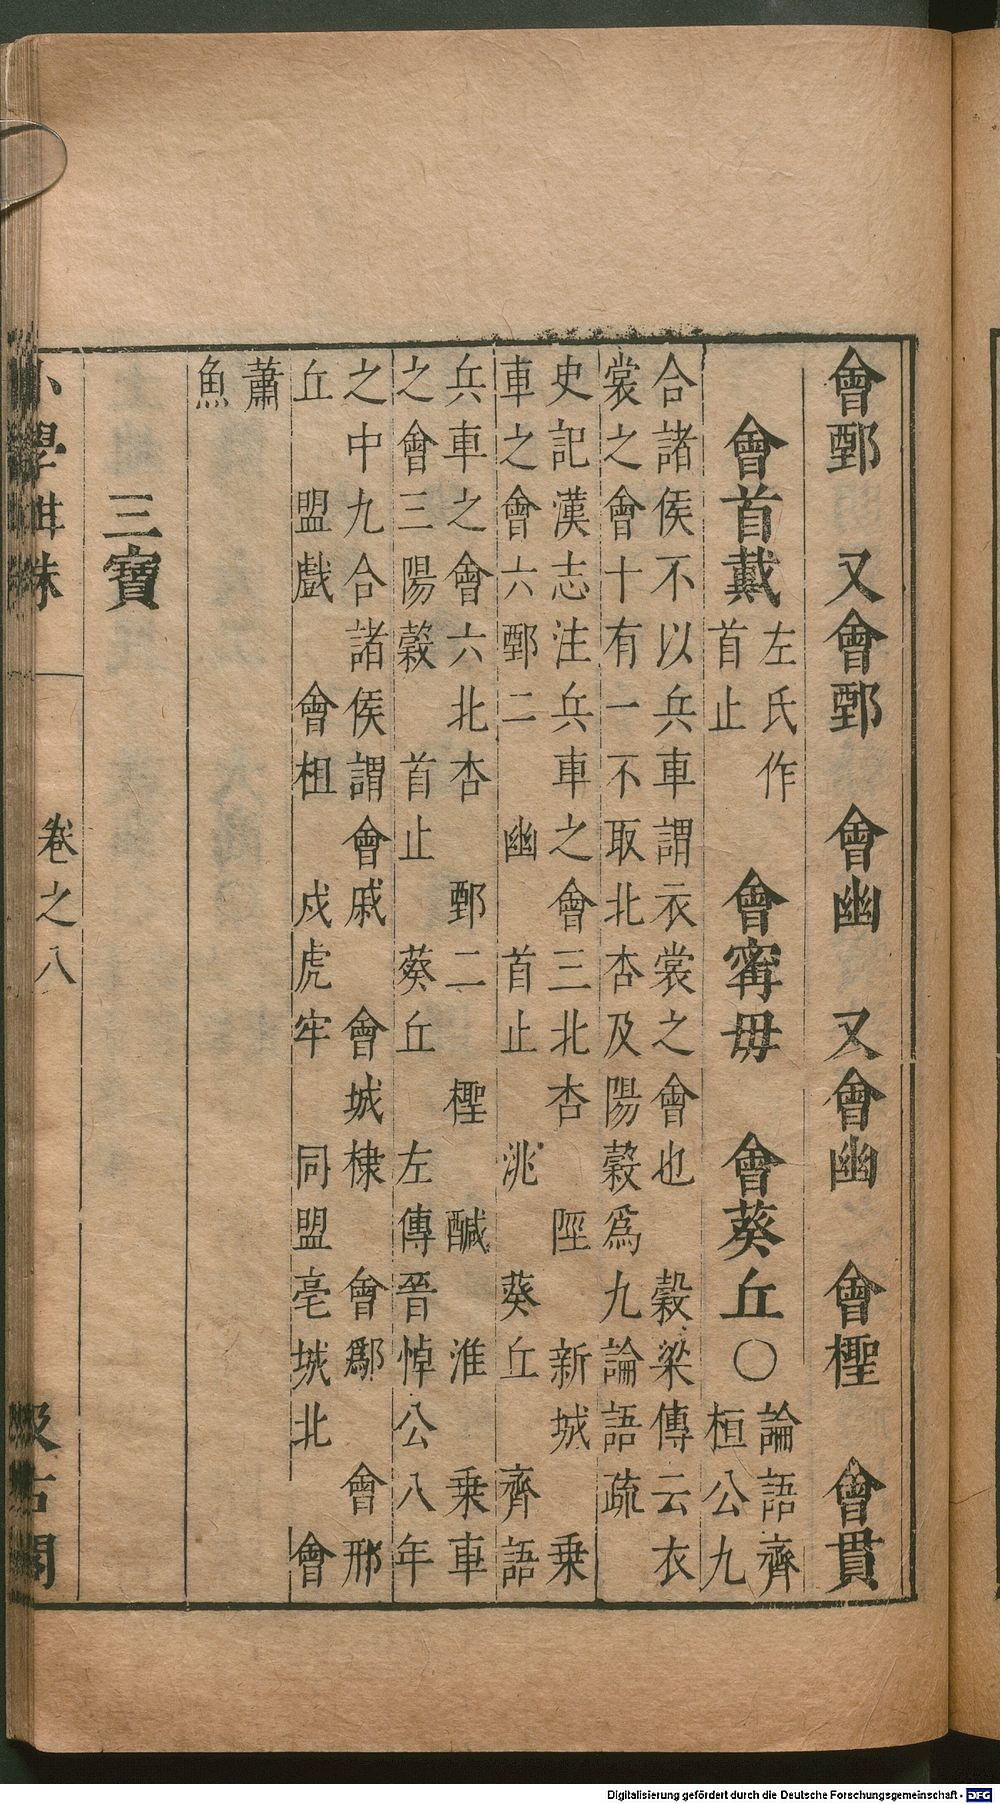 會鄄　又會鄄　會幽　又會幽　會檉　會貫
會首戴
左氏作
首止
會甯毋　會葵丘〇
論語齊
桓公九
合諸侯不以兵車謂衣裳之會也　穀梁傳云衣
裳之會十有一不取北杏及陽穀爲九論語疏
史記漢志注兵車之會三北杏　陘　新城　乗
車之會六鄄二　幽　首止　洮　葵丘　齊語
兵車之會六北杏　鄄二　檉　鹹　淮　乗車
之會三陽穀　首止　葵丘　左傳晉悼公八年
之中九合諸侯謂會戚　會城棣　會鄬　會邢
丘　盟戲　會柤　戍虎牢　同盟亳城北　會
蕭
魚
三寶
小學紺珠　卷之八　汲古閣
Digitalisierung gefördert durch die Deutsche Forschungsgemeinschaft - DFG